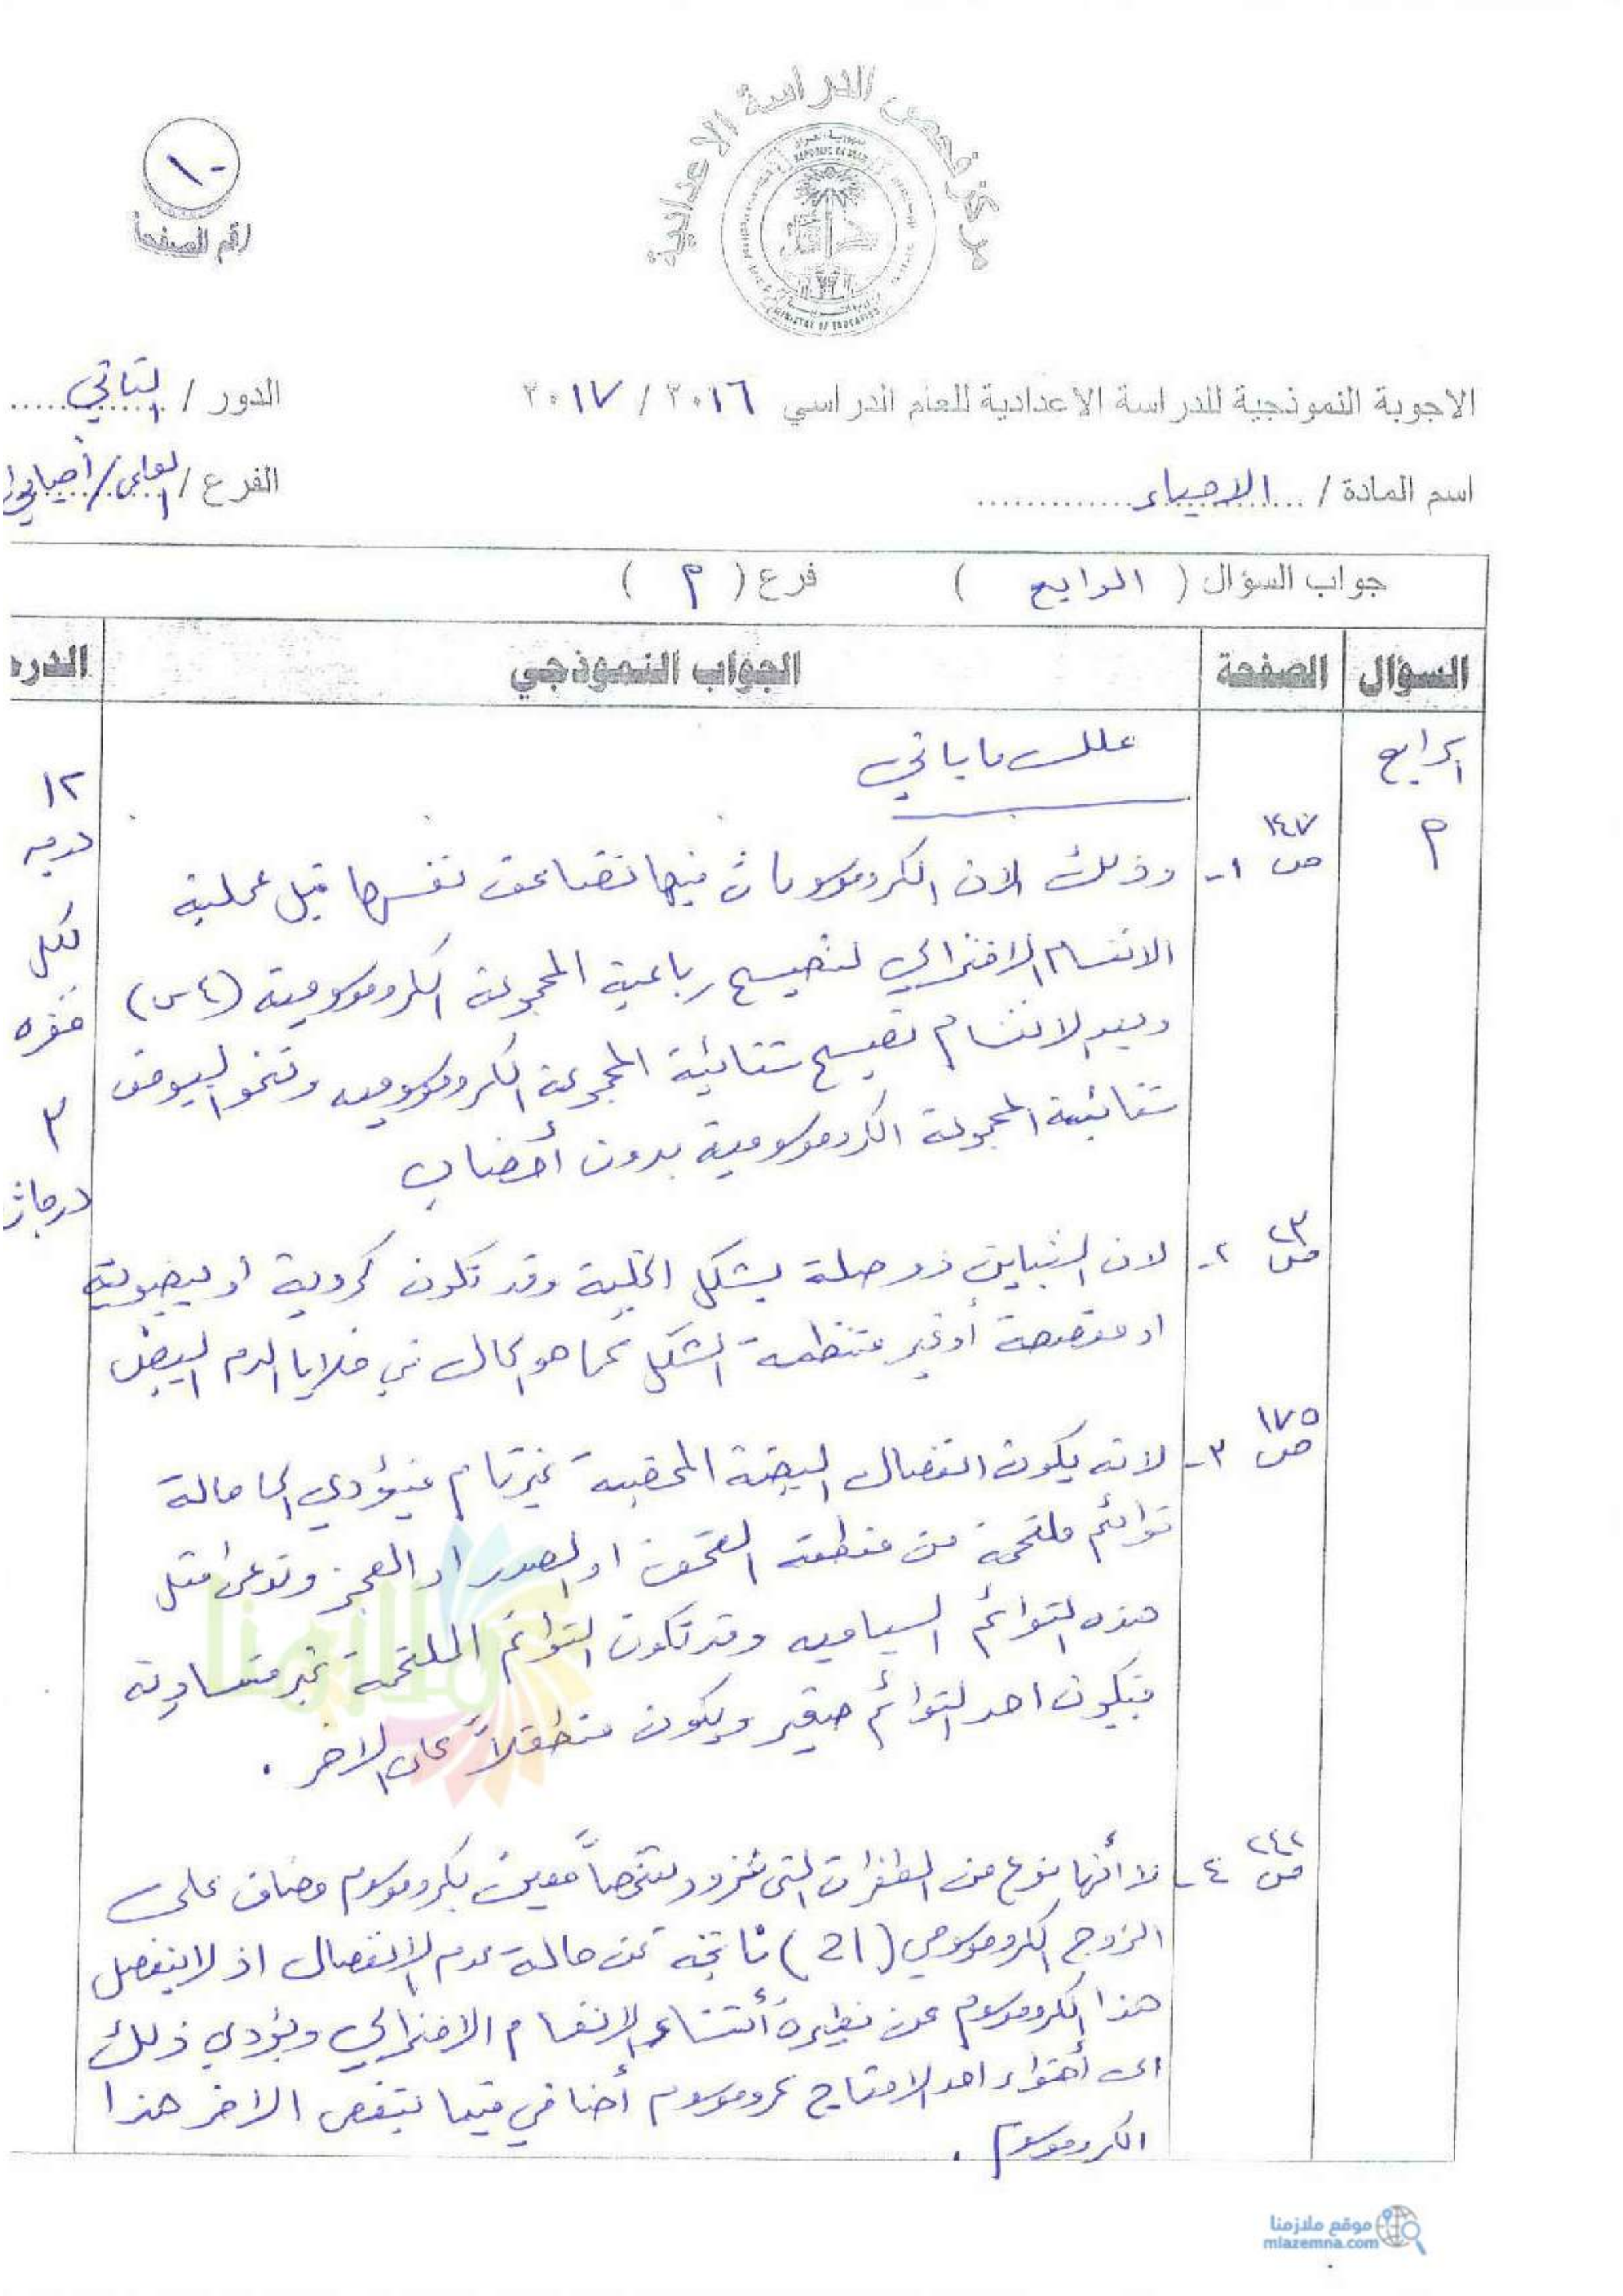 مركز فحص الدراسة الاعدادية
REPUBLIC OF IRAQ
MINISTRY OF EDUCATION
١٠
رقم الصفحة
الاجوبة النموذجية للدراسة الاعدادية للعام الدراسي ٢٠١٦ / ٢٠١٧
الدور / الثاني
اسم المادة / الاحياء
الفرع / العلمي / أحيائي
جواب السؤال ( الرابع ) فرع ( م )
السؤال الصفحة الجواب النموذجي الدرجة
الرابع
م
علل ما يأتي
١٢
درجة
لكل
فقره
٣
درجات
ص ١٤٧ ١- وذلك لان الكروموسومات فيها تضاعف نفسها قبل عملية
الانقسام الاختزالي لتصبح رباعية المجموعة الكروموسومية (٤س)
وبعد الانقسام تصبح ثنائية المجموعة الكروموسوميه وتنمو البيوض
ثنائية المجموعة الكروموسومية بدون أخصاب
ص ٢٣ ٢- لان التباين ذو صلة بشكل الخلية وقد تكون كروية او بيضوية
او مفصصة أو غير منتظمة الشكل كما هو الحال في خلايا الدم البيض
ص ١٧٥ ٣- لانه يكون انفصال البيضة المخصبة غير تام فيؤدي الى حالة
توائم ملتحمة من منطقة القحف او الصدر او العجز وتدعى مثل
هذه التوائم السياميه وقد تكون التوائم الملتحمة غير متساوية
فيكون احد التوائم صغير ويكون متطفلاً على الاخر .
ص ٢٤٢ ٤- لأنها نوع من الطفرات التي تزود شخصاً معين بكروموسوم مضاف على
الزوج الكروموسومي (21) ناتجة عن حالة عدم الانفصال اذ لا ينفصل
هذا الكروموسوم عن نظيره أثناء الانقسام الاختزالي ويؤدي ذلك
الى أحتواء احد الامشاج كروموسوم أضافي فيما ينقص الاخر هذا
الكروموسوم .
ملازمنا
موقع ملازمنا
mlazemna.com